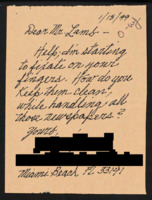 1/13/99
Dear Mr. Lamb--
Help, I'm starting
to fixate on your
fingers. How do you
keep them clean
while handling all
those newspapers?
Yours,
Miami Beach, FL 33141